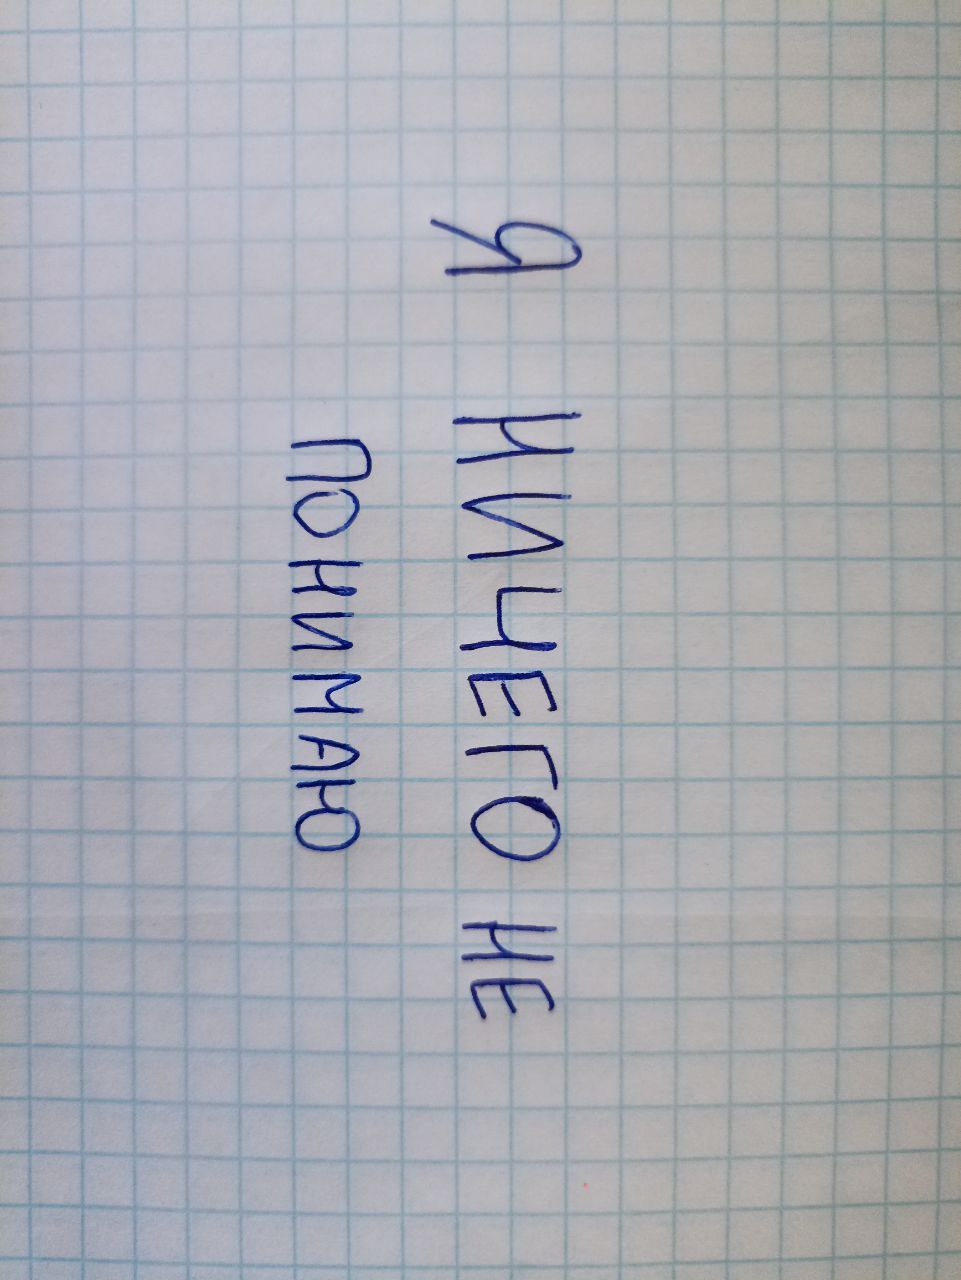 Я НИЧЕГО НЕ
ПОНИМАЮ